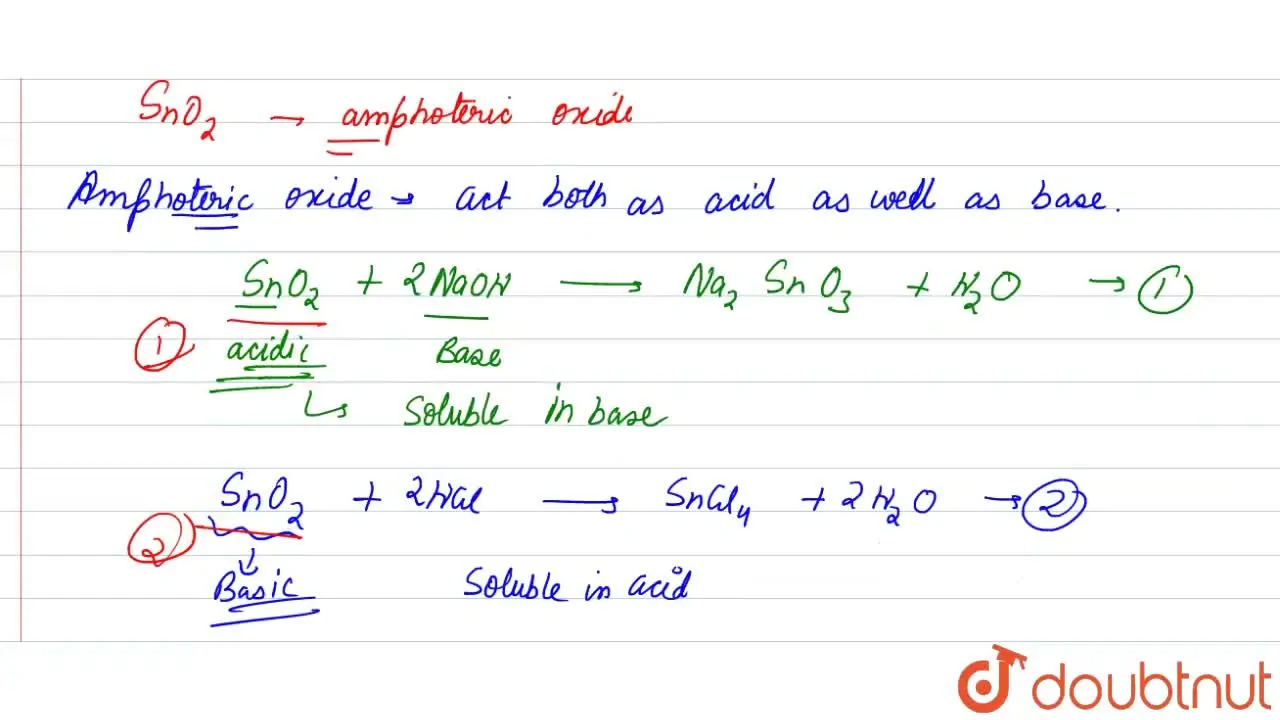 SnO₂ → amphoteric oxide
Amphoteric oxide → act both as acid as well as base.
SnO₂ + 2NaOH → Na₂ SnO₃ + H₂O → ①
① acidic Base
↳ Soluble in base
SnO₂ + 2HCl → SnCl₄ + 2H₂O → ②
②
↓
Basic Soluble in acid
doubtnut